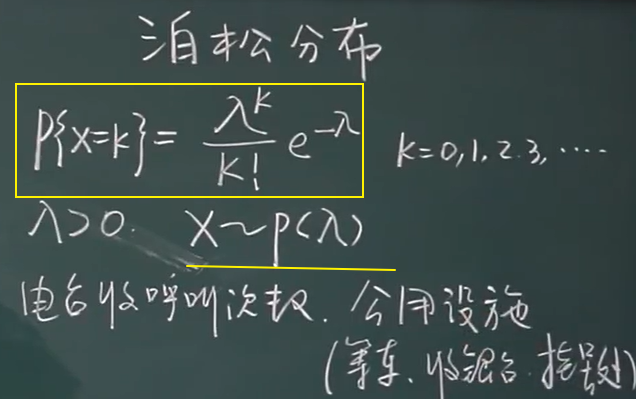 泊松分布
P{X=k}= λ^k/k! e^-λ k=0,1,2.3,····
λ>0. X~P(λ)
电台收呼叫次数.公用设施
(等车、收银台.挂号处)